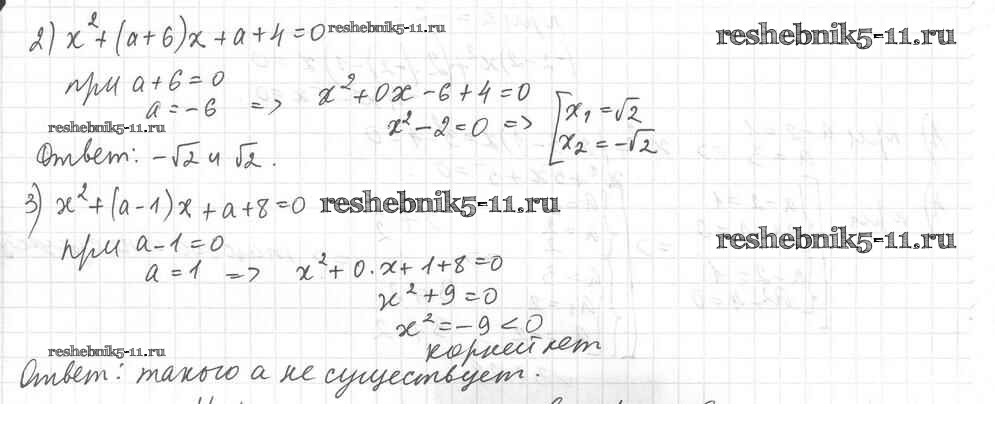 2) x² + (a+6)x + a + 4 = 0 reshebnik5-11.ru
reshebnik5-11.ru
при a + 6 = 0
a = -6 => x² + 0x - 6 + 4 = 0
x² - 2 = 0 => [ x₁ = √2
x₂ = -√2
reshebnik5-11.ru
Ответ: -√2 и √2.
3) x² + (a-1)x + a + 8 = 0 reshebnik5-11.ru
reshebnik5-11.ru
при a - 1 = 0
a = 1 => x² + 0·x + 1 + 8 = 0
x² + 9 = 0
x² = -9 < 0
корней нет
reshebnik5-11.ru
Ответ: такого a не существует.